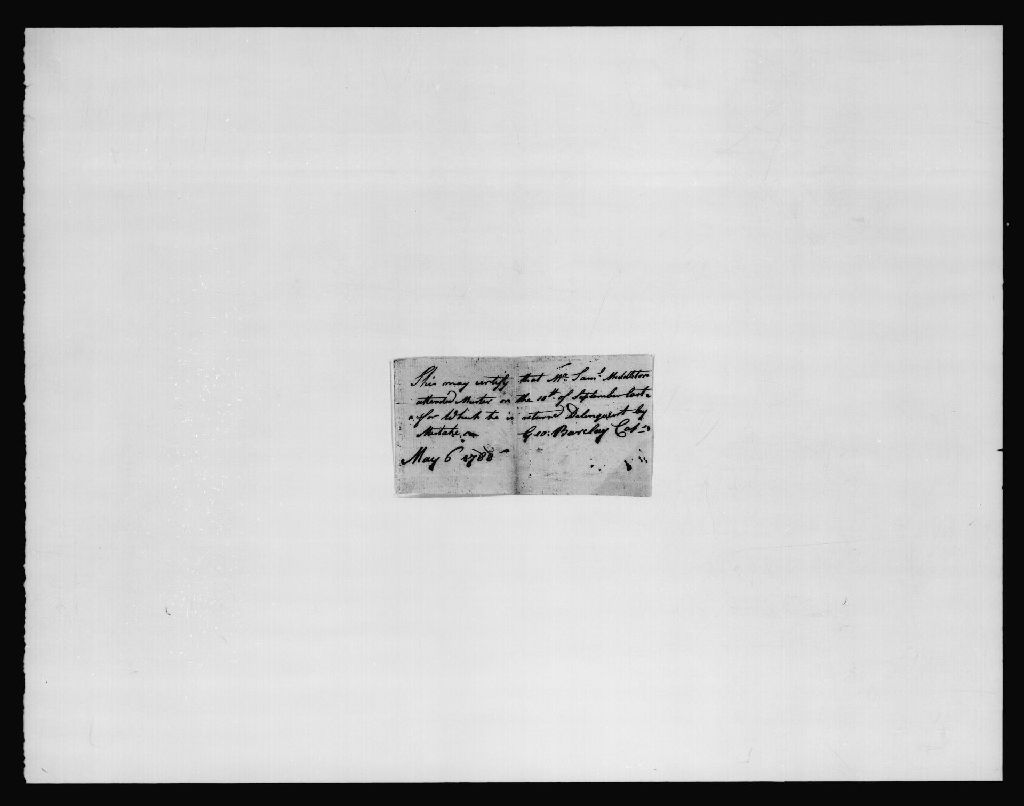 This may certify that Mr. Saml. Middleton
attended Muster on the 10th. of September last
for Which he is returned Delenquent by
Mistake
Geo. Barclay Cap
May 6 1788